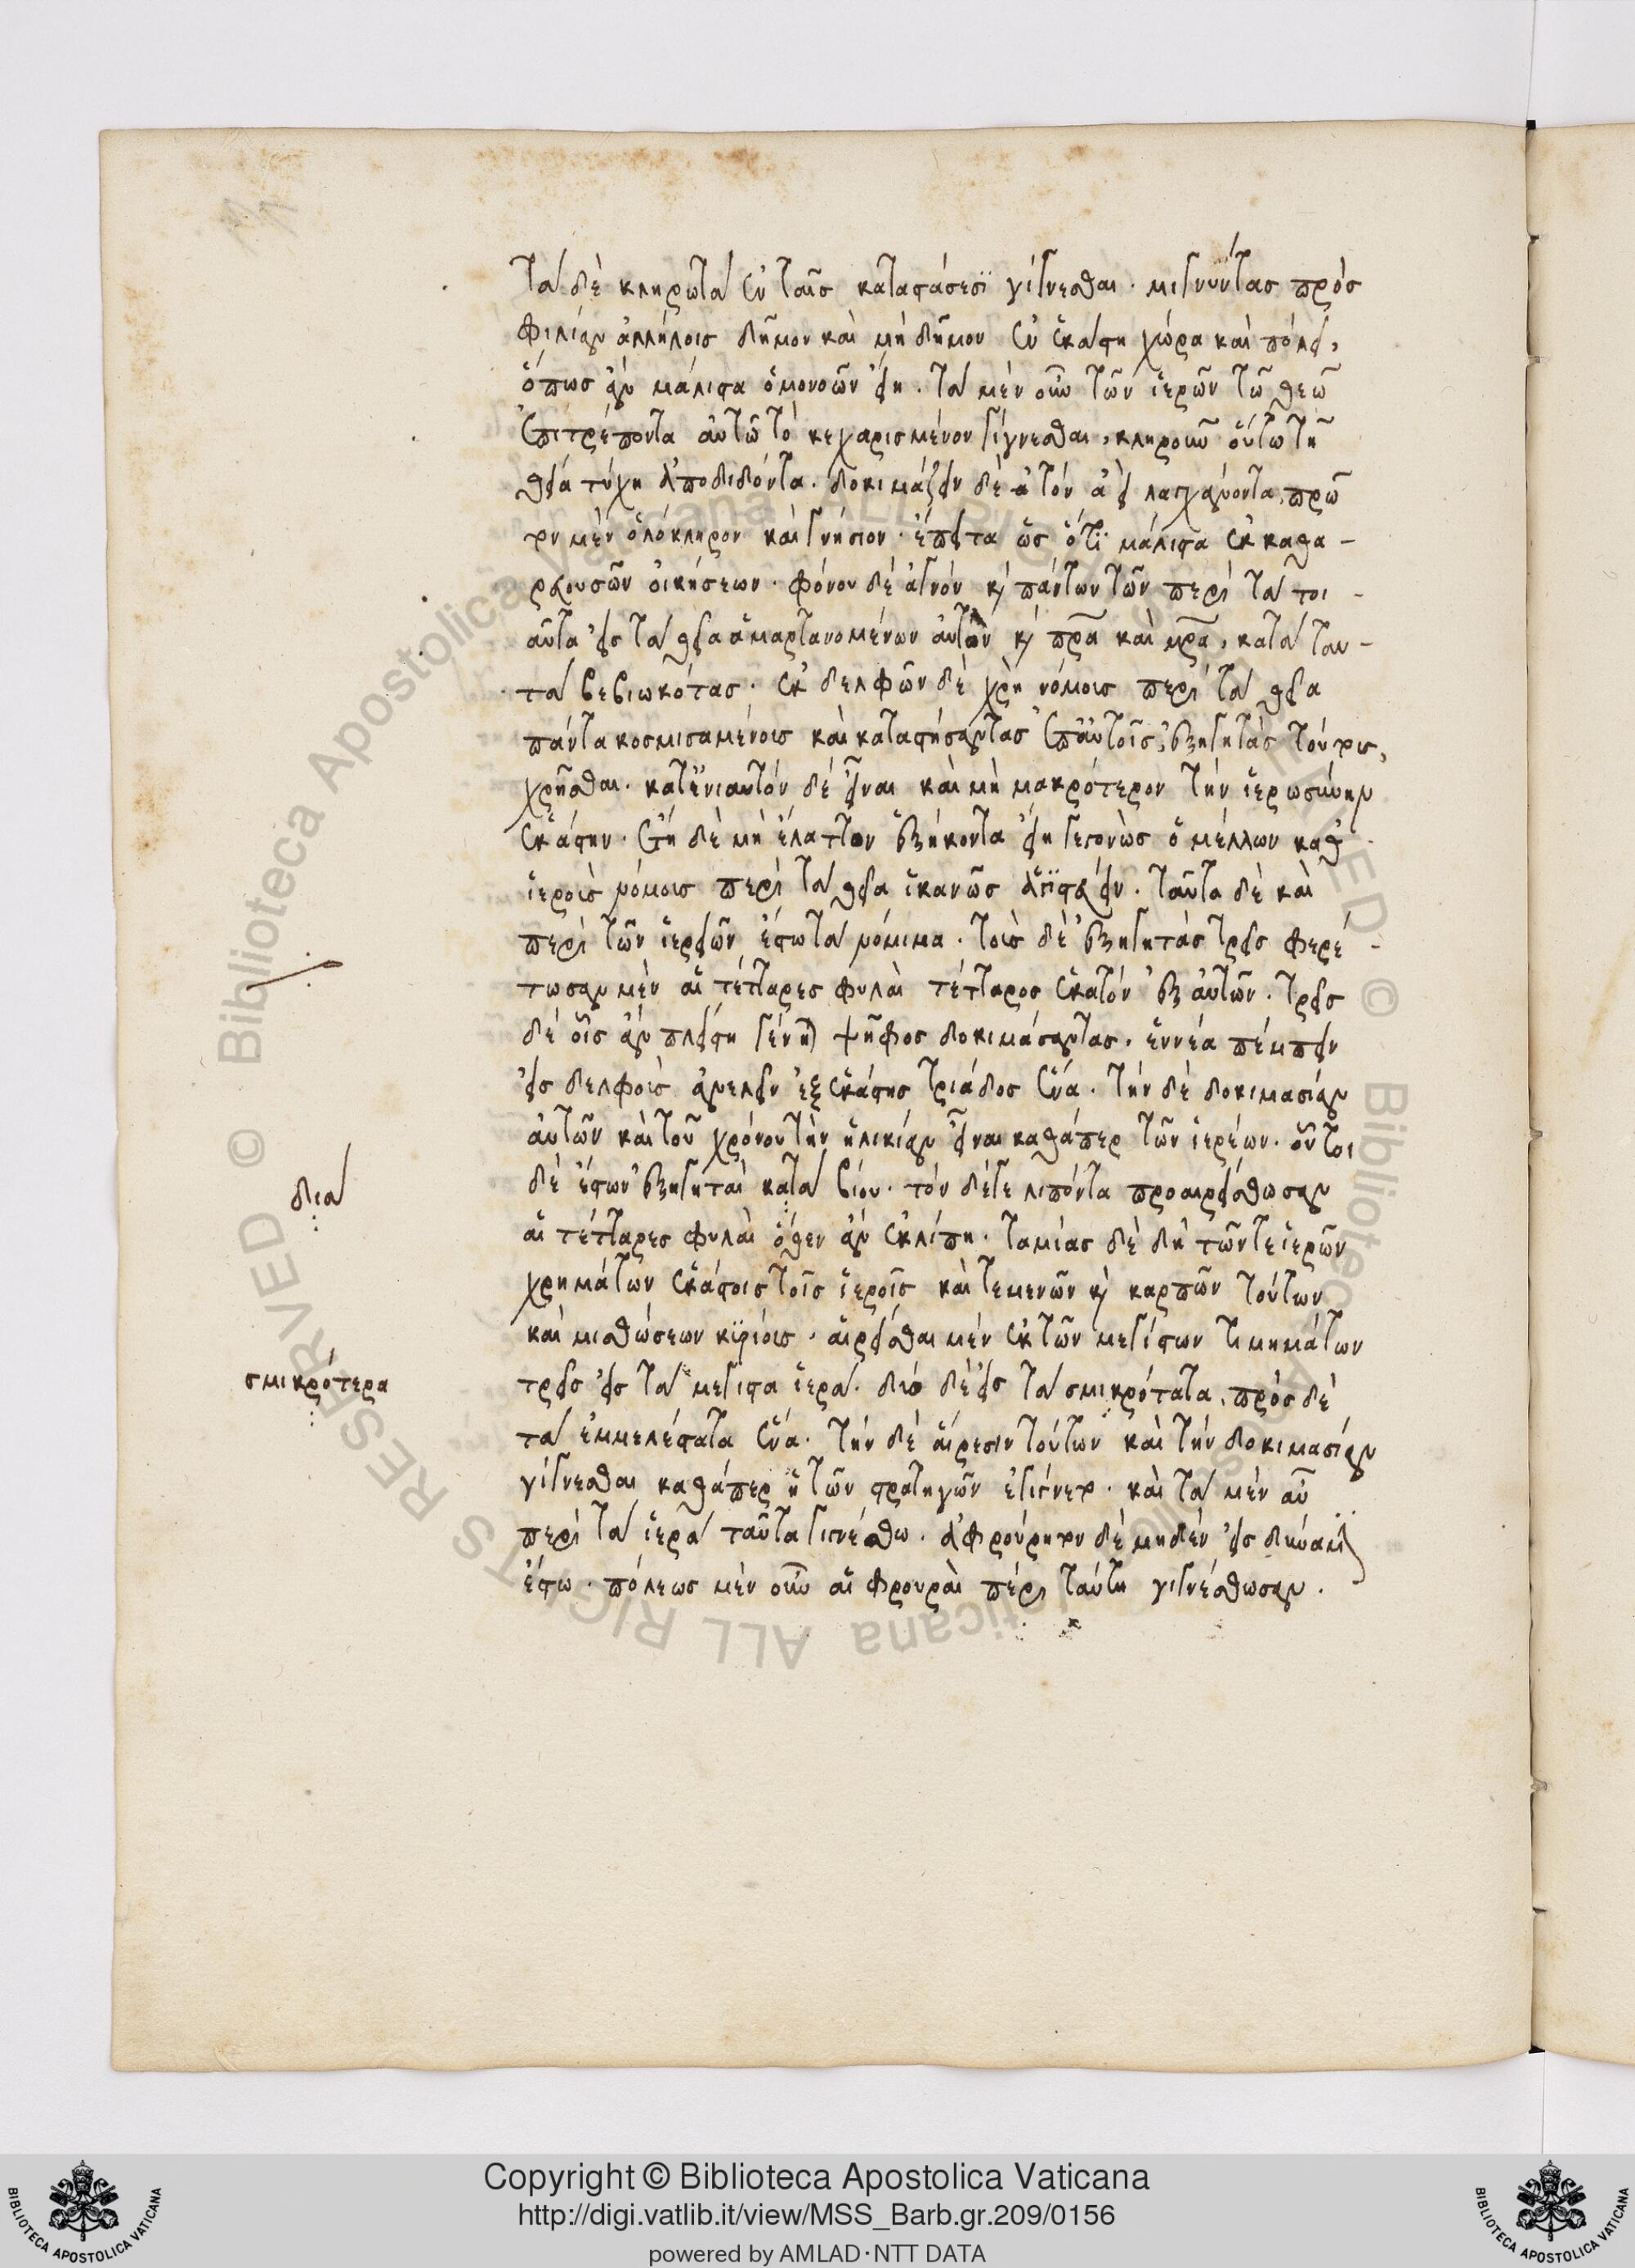 τὰ δὲ κληρωτὰ ἐν ταῖς καταστάσεσϊ γίγνεσθαι· μιγνύντας πρὸς
φιλίαν ἀλλήλοις δῆμον καὶ μὴ δῆμον ἐν ἑκάστη χώρα καὶ πόλει,
ὅπως ἂν μάλιστα ὁμονοῶν εἴη. τὰ μὲν οὖν τῶν ἱερῶν τῶ θεῶ
ἐπιτρέποντα αὐτῶ τὸ κεχαρισμένον γίγνεσθαι, κληροῦν οὕτω τῆ
θεία τύχη ἀποδιδόντα. δοκιμάζειν δὲ ἀ τὸν ἀεὶ λαγχάνοντα, πρῶ
τον μὲν ὁλόκληρον καὶ γνήσιον· ἔπειτα ὡς ὅτϊ μάλιστα ἐκ καθα-
ρευουσῶν οἰκήσεων· φόνου δὲ ἁγνὸν κ πάντων τῶν περὶ τὰ τοι-
αῦτα εἰς τὰ θεῖα ἁμαρτανομένων αὐτὸν κ πρα καὶ μρα, κατὰ ταυ-
τὰ βεβιωκότας. ἐκ δελφῶν δὲ χρὴ νόμους περὶ τὰ θεῖα
πάντα κοσμισαμένους καὶ καταστήσαντας ἐπ' αὐτοῖς, ἐξηγητὰς τούτοις,
χρῆσθαι. κατ' ἐνιαυτὸν δὲ εἶναι καὶ μὴ μακρότερον τὴν ἱερωσύνην
ἑκάστην. ἔτη δὲ μὴ ἔλαττον ἑξήκοντα εἴη γεγονὼς ὁ μέλλων καθ'
ἱεροὺς νόμους περὶ τὰ θεῖα ἱκανῶς ἁγϊστεύειν. ταῦτα δὲ καὶ
περὶ τῶν ἱερειῶν ἔστω τὰ νόμιμα. τοὺς δὲ ἐξηγητὰς τρεῖς φερέ-
τωσαν μὲν αἱ τέτταρες φυλαὶ τέτταρος ἕκατον ἐξ αὐτῶν. τρεῖς
δὲ οἷς ἂν πλείστη γένηται ψῆφος δοκιμάσαντας. ἐννέα πέμπειν
εἰς δελφοὺς ἀνελεῖν ἐξ ἑκάστης τριάδος ἕνα. τὴν δὲ δοκιμασίαν
αὐτῶν καὶ τοῦ χρόνου τὴν ἡλικίαν εἶναι καθάπερ τῶν ἱερέων. οὗτοι
δὲ ἔστων ἐξηγηταὶ κατὰ βίον. τὸν δέ γε λιπόντα προαιρείσθωσαν
αἱ τέτταρες φυλαὶ ὅθεν ἂν ἐκλίπη. ταμίας δὲ δὴ τῶν τε ἱερῶν
χρημάτων ἑκάστοις τοῖς ἱεροῖς καὶ τεμενῶν κ καρπῶν τούτων
καὶ μισθώσεων κϋρίους. αἱρεῖσθαι μὲν ἐκ τῶν μεγίστων τιμημάτων
τρεῖς εἰς τὰ μέγιστα ἱερά. δύο δὲ εἰς τὰ σμικρότατα, πρὸς δὲ
τὰ ἐμμελέστατα ἕνα. τὴν δὲ αἵρεσιν τούτων καὶ τὴν δοκιμασίαν
γίγνεσθαι καθάπερ ἡ τῶν στρατηγῶν ἐγίγνετο. καὶ τὰ μὲν αὖ
περὶ τὰ ἱερὰ ταῦτα γιγνέσθω. ἀφρούρητον δὲ μηδὲν εἰς δύναμιν
ἔστω. πόλεως μὲν οὖν αἱ φρουραὶ πέρι ταύτη γιγνέσθωσαν.
διὰ
σμικρότερα
Copyright © Biblioteca Apostolica Vaticana
http://digi.vatlib.it/view/MSS_Barb.gr.209/0156
powered by AMLAD·NTT DATA
BIBLIOTECA APOSTOLICA VATICANA
BIBLIOTECA APOSTOLICA VATICANA